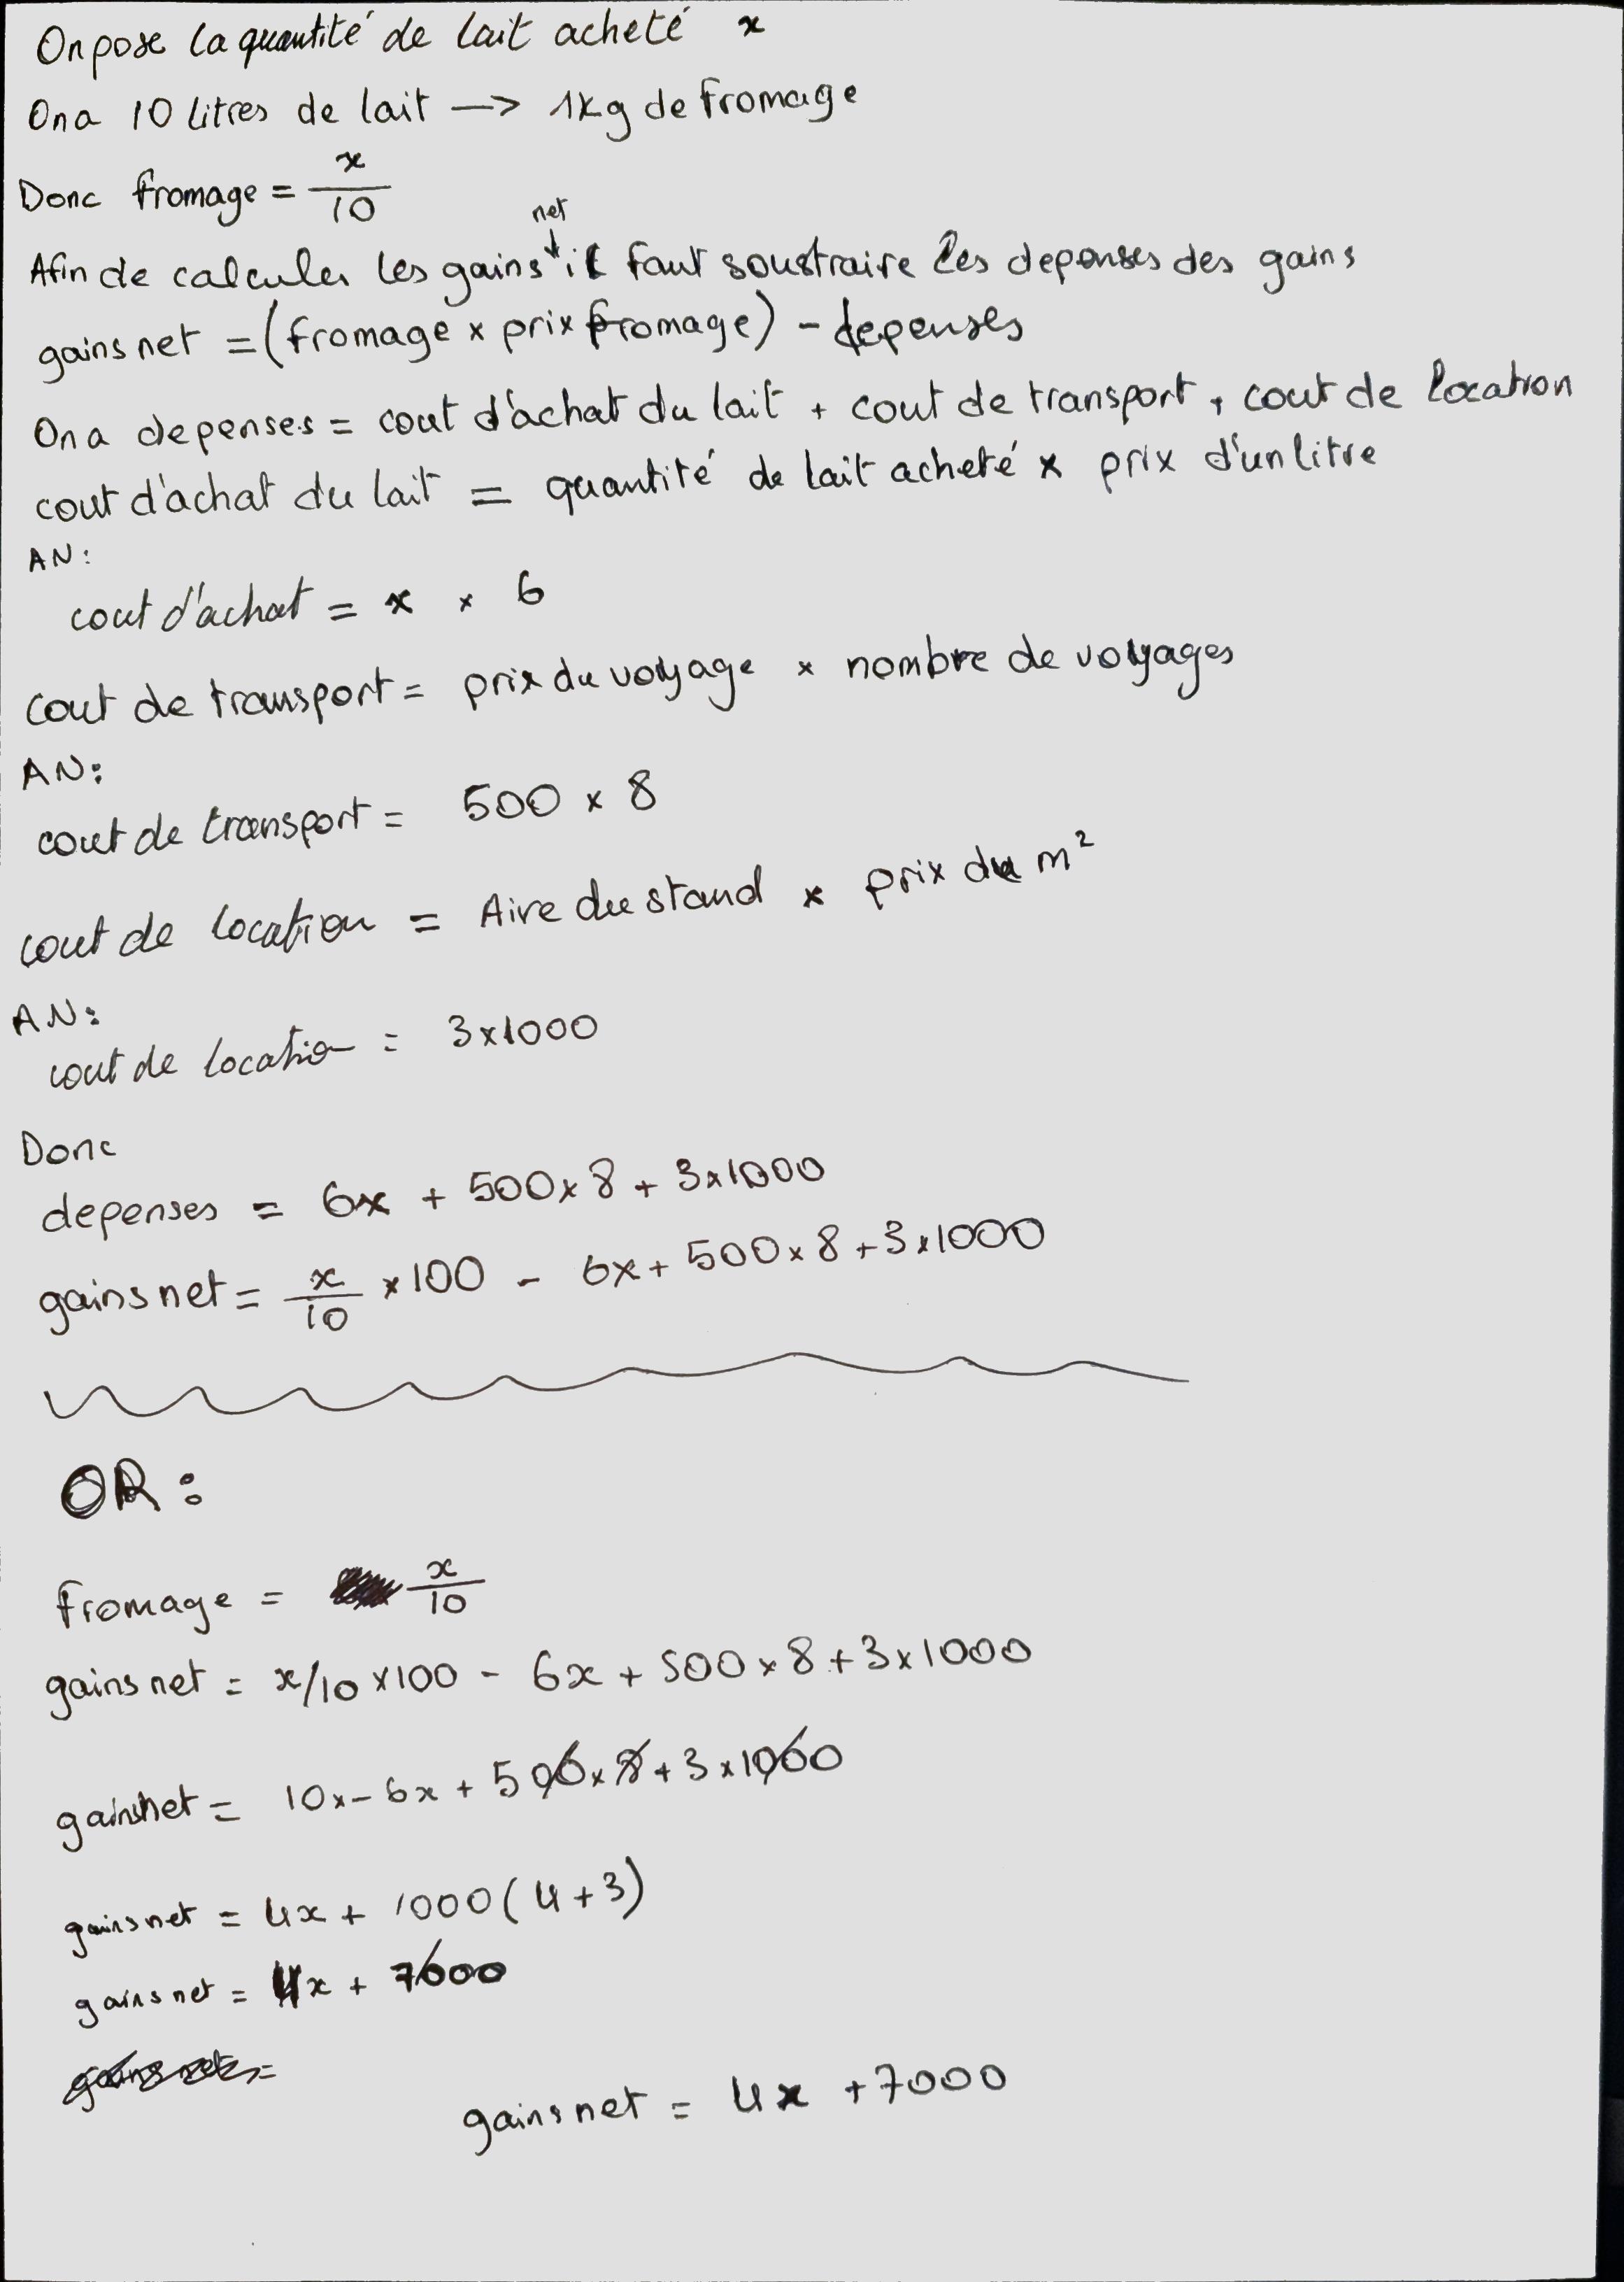 On pose la quantité de lait acheté x
On a 10 litres de lait —> 1kg de fromage
Donc fromage = x/10
net
Afin de calculer les gains ↓ il faut soustraire les depenses des gains
gains net = (fromage x prix fromage) - depenses
On a depenses = cout d'achat du lait + cout de transport + cout de location
cout d'achat du lait = quantité de lait acheté x prix d'un litre
AN:
cout d'achat = x × 6
cout de transport = prix du voyage × nombre de voyages
AN:
cout de transport = 500 × 8
cout de location = Aire du stand × prix du m²
AN:
cout de location = 3×1000
Donc
depenses = 6x + 500×8 + 3×1000
gains net = x/10 ×100 - 6x + 500×8 + 3×1000
OR:
fromage = x/10
gains net = x/10 ×100 - 6x + 500×8 + 3×1000
gains net = 10x - 6x + 500×8 + 3×1000
gains net = 4x + 1000(4+3)
gains net = 4x + 7000
gains net =
gains net = 4x + 7000